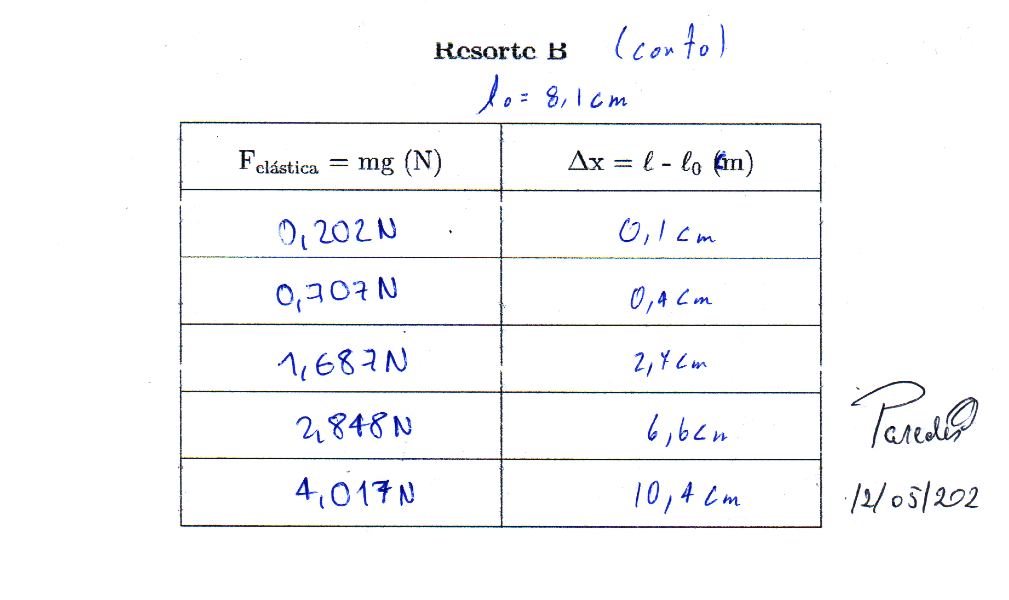 Resorte B (corto)
l₀ = 8,1 cm
Felástica = mg (N) Δx = ℓ - ℓ₀ (cm)
0,202 N 0,1 cm
0,707 N 0,4 cm
1,687 N 2,4 cm
2,848 N 6,6 cm
4,017 N 10,4 cm
Paredes
12/05/202